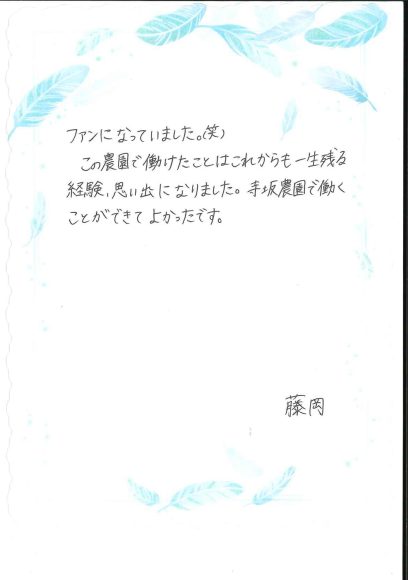 ファンになっていました。(笑)
この農園で働けたことはこれからも一生残る
経験、思い出になりました。寺坂農園で働く
ことができてよかったです。
藤岡